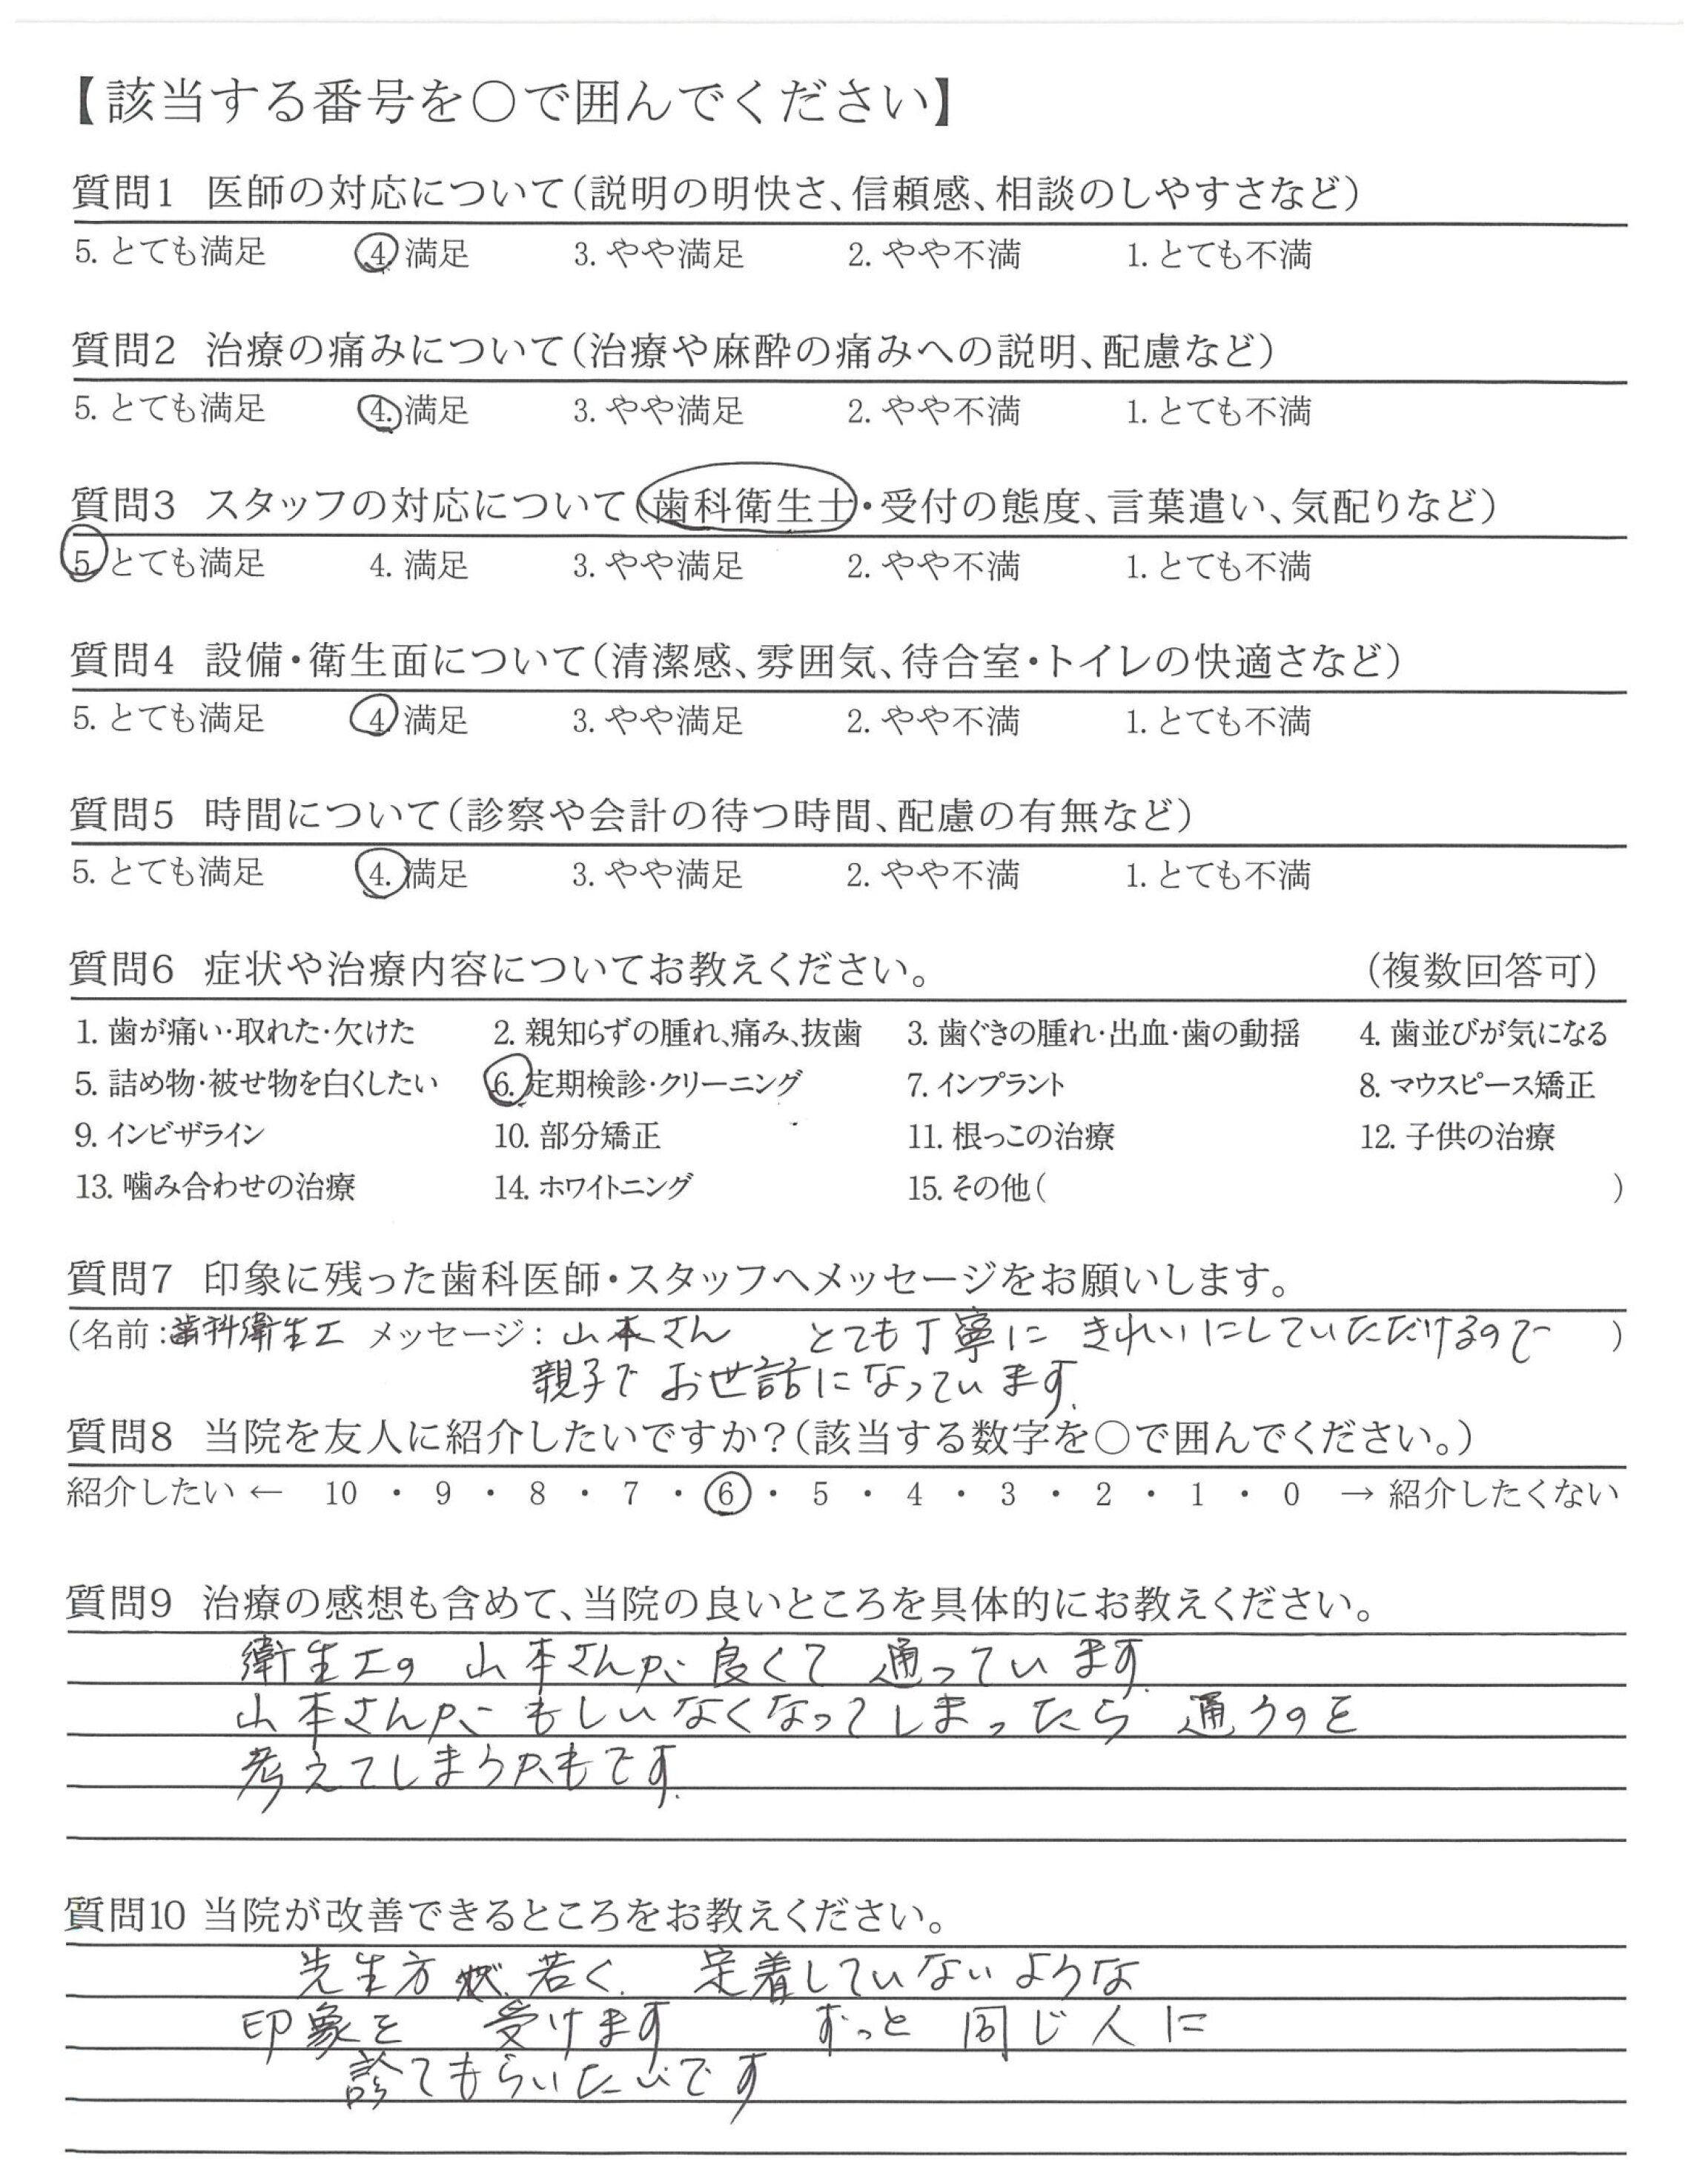 【該当する番号を〇で囲んでください】
質問1 医師の対応について(説明の明快さ、信頼感、相談のしやすさなど)
5. とても満足 4. 満足 3. やや満足 2. やや不満 1. とても不満
質問2 治療の痛みについて(治療や麻酔の痛みへの説明、配慮など)
5. とても満足 4. 満足 3. やや満足 2. やや不満 1. とても不満
質問3 スタッフの対応について(歯科衛生士・受付の態度、言葉遣い、気配りなど)
5. とても満足 4. 満足 3. やや満足 2. やや不満 1. とても不満
質問4 設備・衛生面について(清潔感、雰囲気、待合室・トイレの快適さなど)
5. とても満足 4. 満足 3. やや満足 2. やや不満 1. とても不満
質問5 時間について(診察や会計の待つ時間、配慮の有無など)
5. とても満足 4. 満足 3. やや満足 2. やや不満 1. とても不満
質問6 症状や治療内容についてお教えください。 (複数回答可)
1. 歯が痛い・取れた・欠けた 2. 親知らずの腫れ、痛み、抜歯 3. 歯ぐきの腫れ・出血・歯の動揺 4. 歯並びが気になる
5. 詰め物・被せ物を白くしたい 6. 定期検診・クリーニング 7. インプラント 8. マウスピース矯正
9. インビザライン 10. 部分矯正 11. 根っこの治療 12. 子供の治療
13. 噛み合わせの治療 14. ホワイトニング 15. その他( )
質問7 印象に残った歯科医師・スタッフへメッセージをお願いします。
(名前:歯科衛生士 メッセージ: 山本さん とても丁寧に きれいにしていただけるので )
親子で お世話になっています.
質問8 当院を友人に紹介したいですか?(該当する数字を〇で囲んでください。)
紹介したい ← 10 ・ 9 ・ 8 ・ 7 ・ 6 ・ 5 ・ 4 ・ 3 ・ 2 ・ 1 ・ 0 → 紹介したくない
質問9 治療の感想も含めて、当院の良いところを具体的にお教えください。
衛生士の 山本さんが 良くて 通っています.
山本さんが もしいなくなってしまったら 通うのを
考えてしまうかもです.
質問10 当院が改善できるところをお教えください。
先生方が 若く. 定着していないような
印象を 受けます ずっと 同じ人に
診てもらいたいです